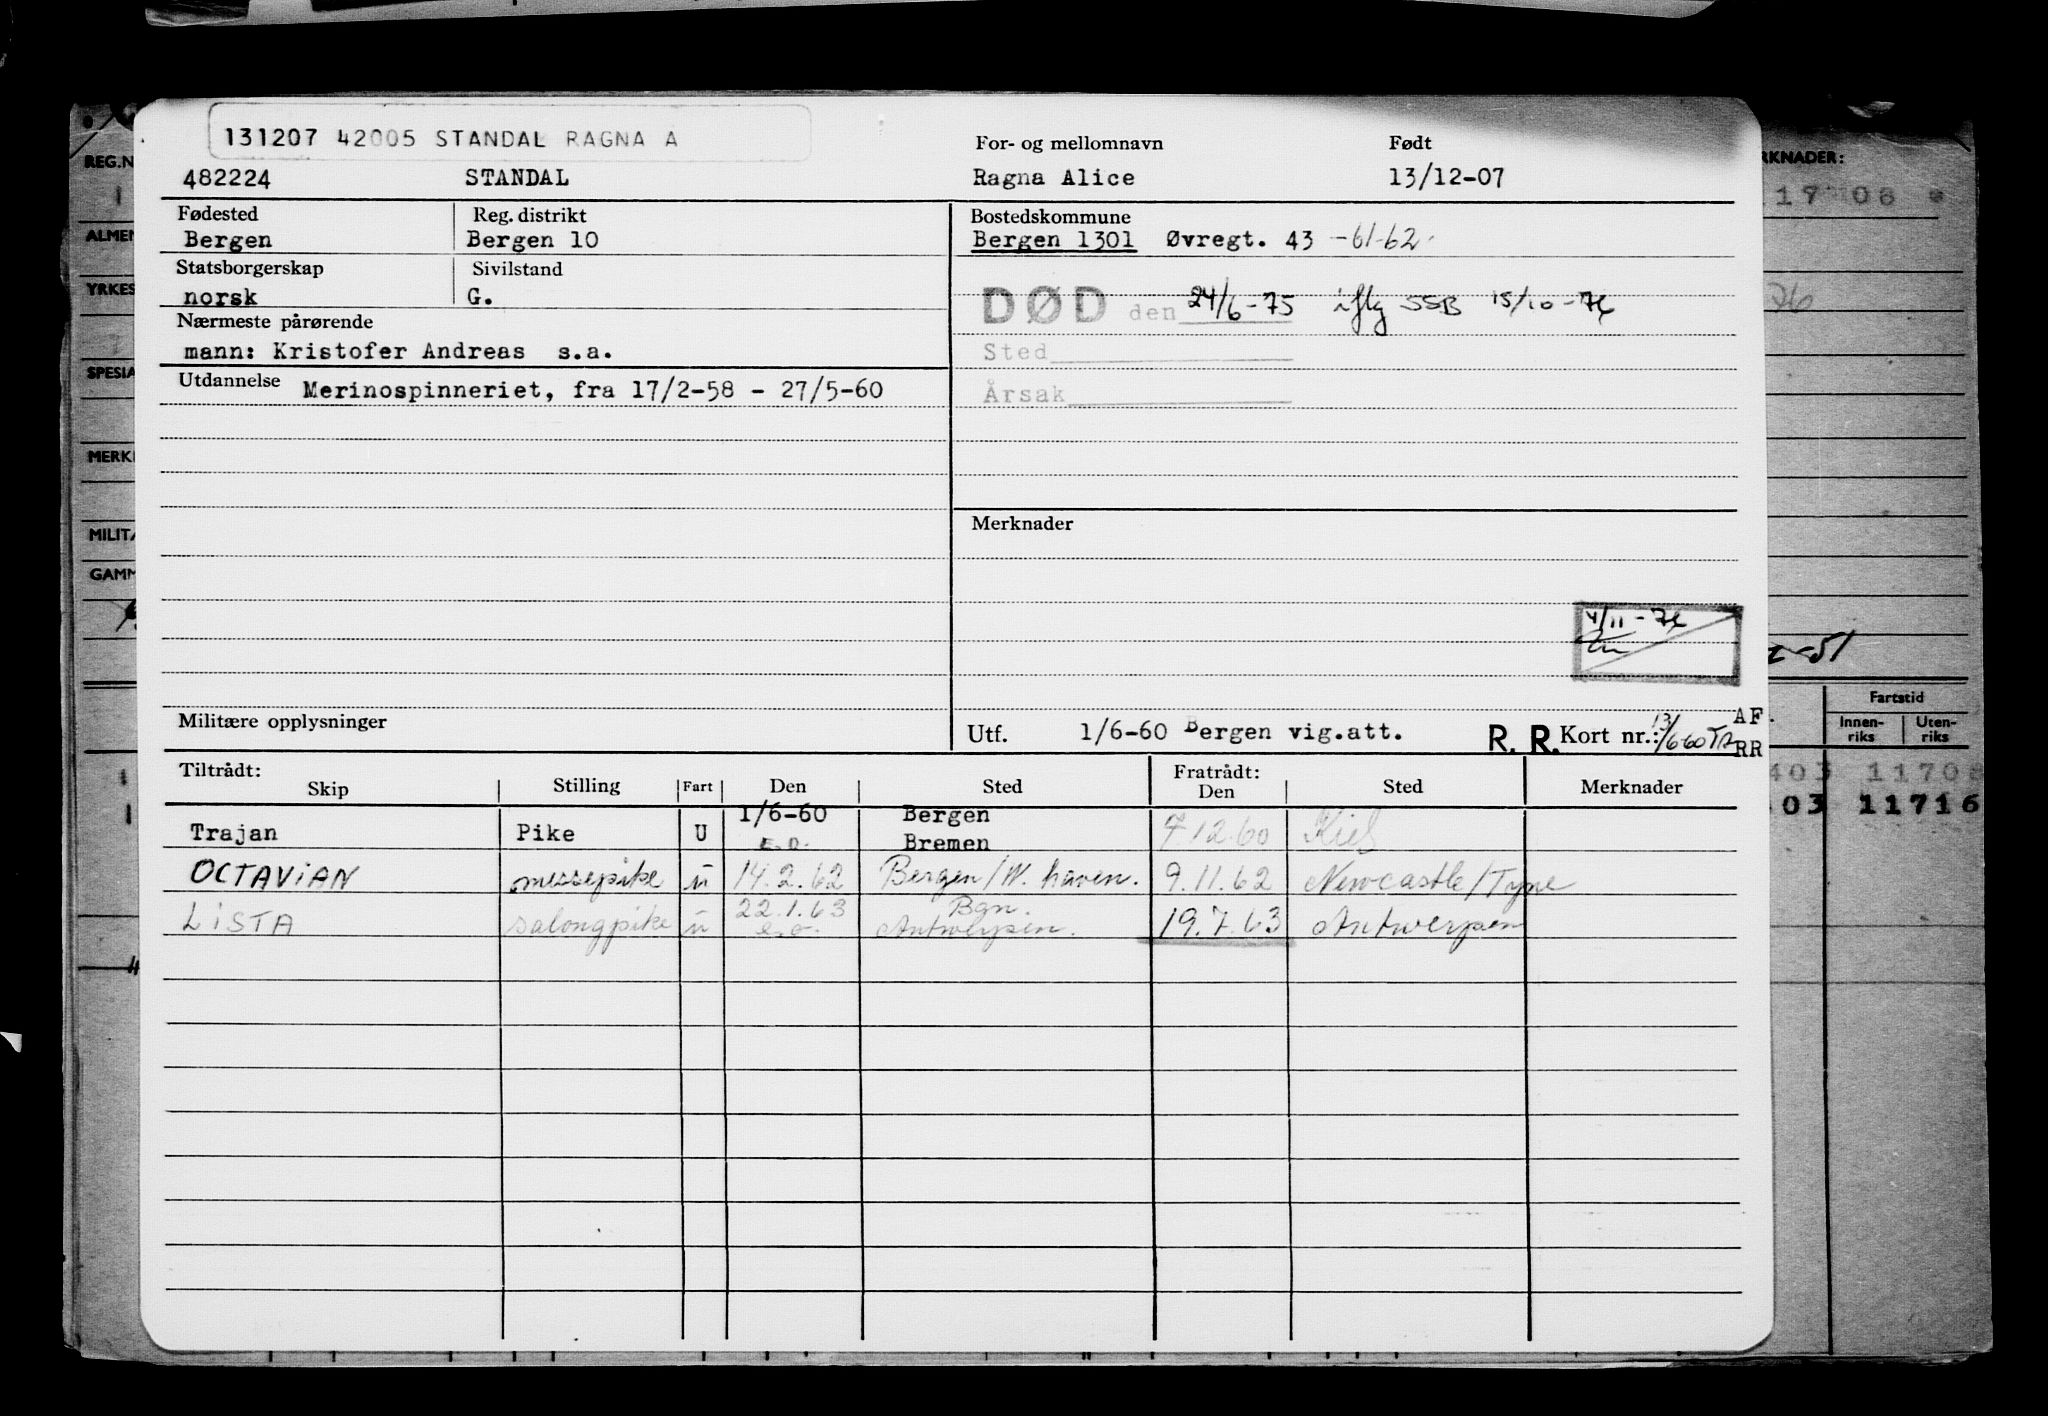 131207 42005 STANDAL RAGNA A
For- og mellomnavn Født
482224 STANDAL Ragna Alice 13/12-07
Fødested Reg. distrikt Bostedskommune
Bergen Bergen 10 Bergen 1301 Øvregt. 43 -61-62.
Statsborgerskap Sivilstand
norsk G.
DØD den 24/6-75 iflg SSB 15/10-76
Nærmeste pårørende
mann: Kristofer Andreas s.a.
Sted
Utdannelse Merinospinneriet, fra 17/2-58 - 27/5-60
Årsak
Merknader
4/11-76
Militære opplysninger
Utf. 1/6-60 Bergen vig.att. R. R. Kort nr.: 13/6-60 AF.
RR
Tiltrådt: Fratrådt:
Skip Stilling Fart Den Sted Den Sted Merknader
1/6-60 Bergen
Trajan Pike U E.O. Bremen 7.12.60 Kiel
OCTAVIAN messepike u 14.2.62 Bergen/W. haven. 9.11.62 Newcastle/Tyne
22.1.63 Bgn.
LISTA salongpike u e.o. Antwerpen. 19.7.63 Antwerpen
REG.N
ALMEN
YRKES
SPESIA
MERK
MILITÆ
GAMM
RKNADER:
117 08 *
76
-51
Fartstid
Innen-riks Uten-riks
403 11708
03 11716